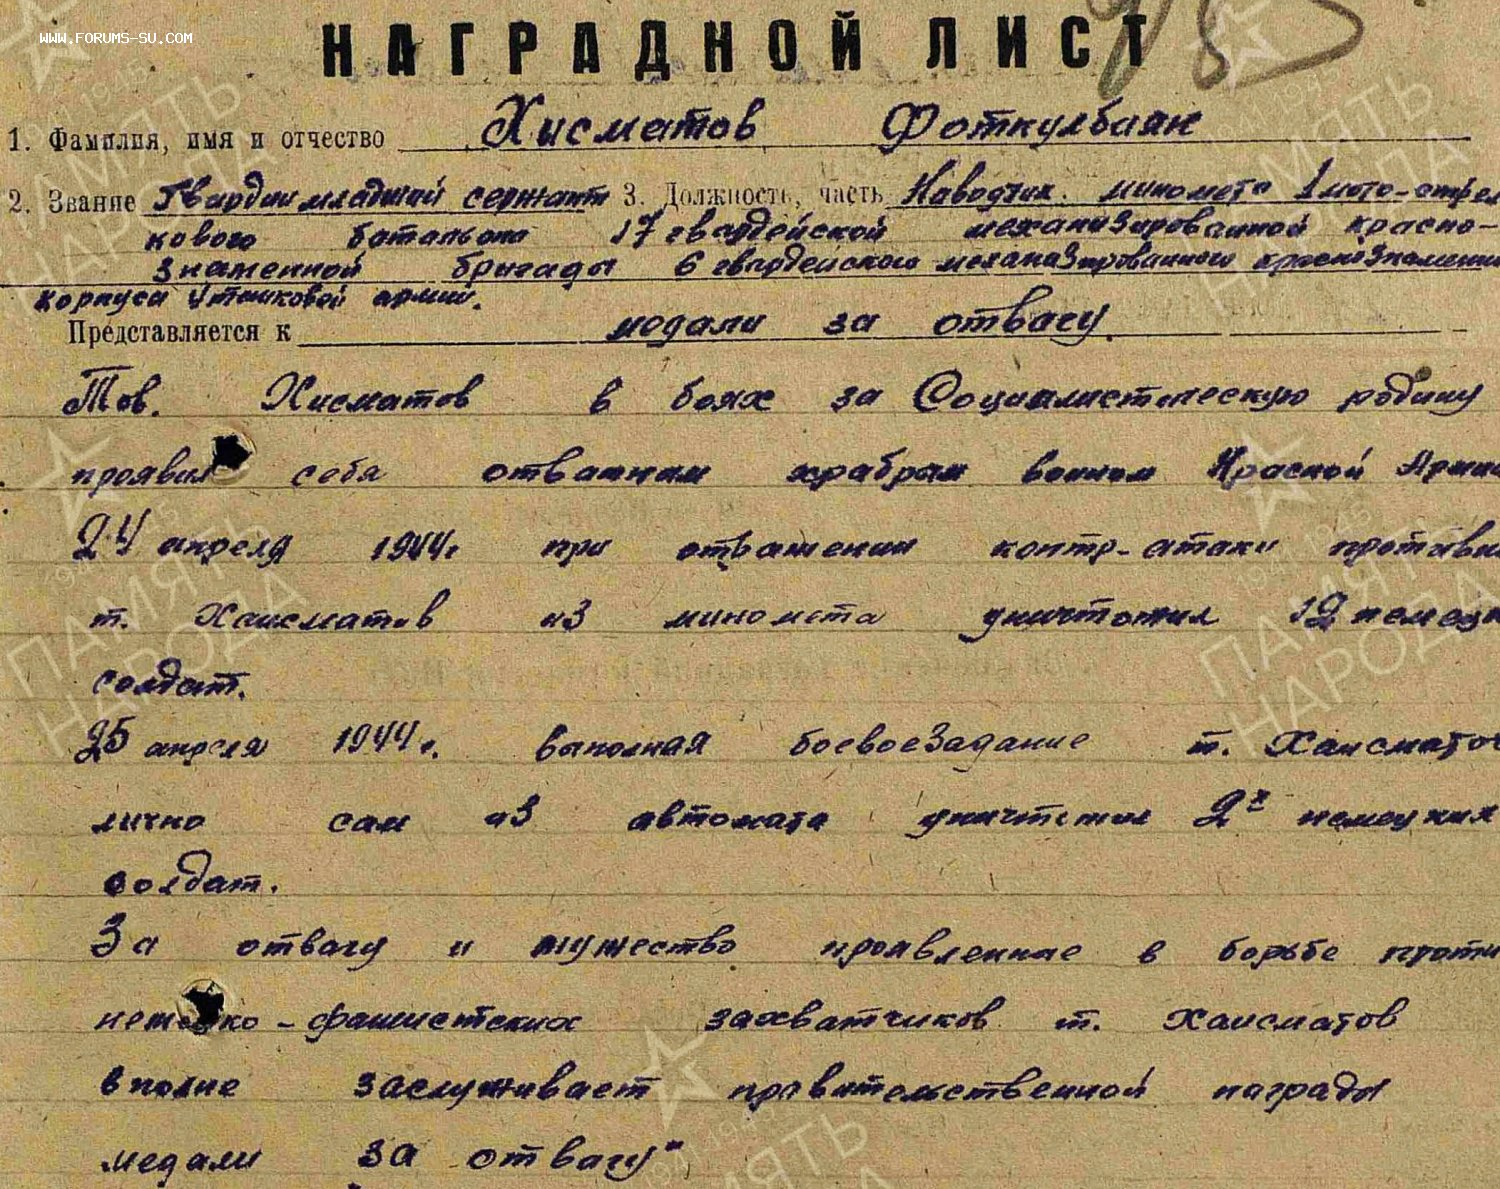 WWW.FORUMS-SU.COM
НАГРАДНОЙ ЛИСТ
1. Фамилия, имя и отчество Хисматов Фоткулбаян
2. Звание Гвардии младший сержант 3. Должность, часть Наводчик миномета 1 мото-стрел
кового батальона 17 гвардейской механизированной красно-
знаменной бригады 6 гвардейского механизированного краснознаменно
корпуса 4 танковой армии.
Представляется к медали за отвагу.
Тов. Хисматов в боях за Социалистическую родину
проявил себя отважным храбрым воином Красной Армии
24 апреля 1944г при отражении контр-атаки противни
т. Хаисматов из миномета уничтожил 12 немецк
солдат.
25 апреля 1944г. выполняя боевое задание т. Хаисматов
лично сам из автомата уничтожил 2х немецких
солдат.
За отвагу и мужество проявленные в борьбе проти
немецко-фашистских захватчиков т. Хаисматов
вполне заслуживает правительственной награды
медали за отвагу"
ПАМЯТЬ
НАРОДА
1941 1945